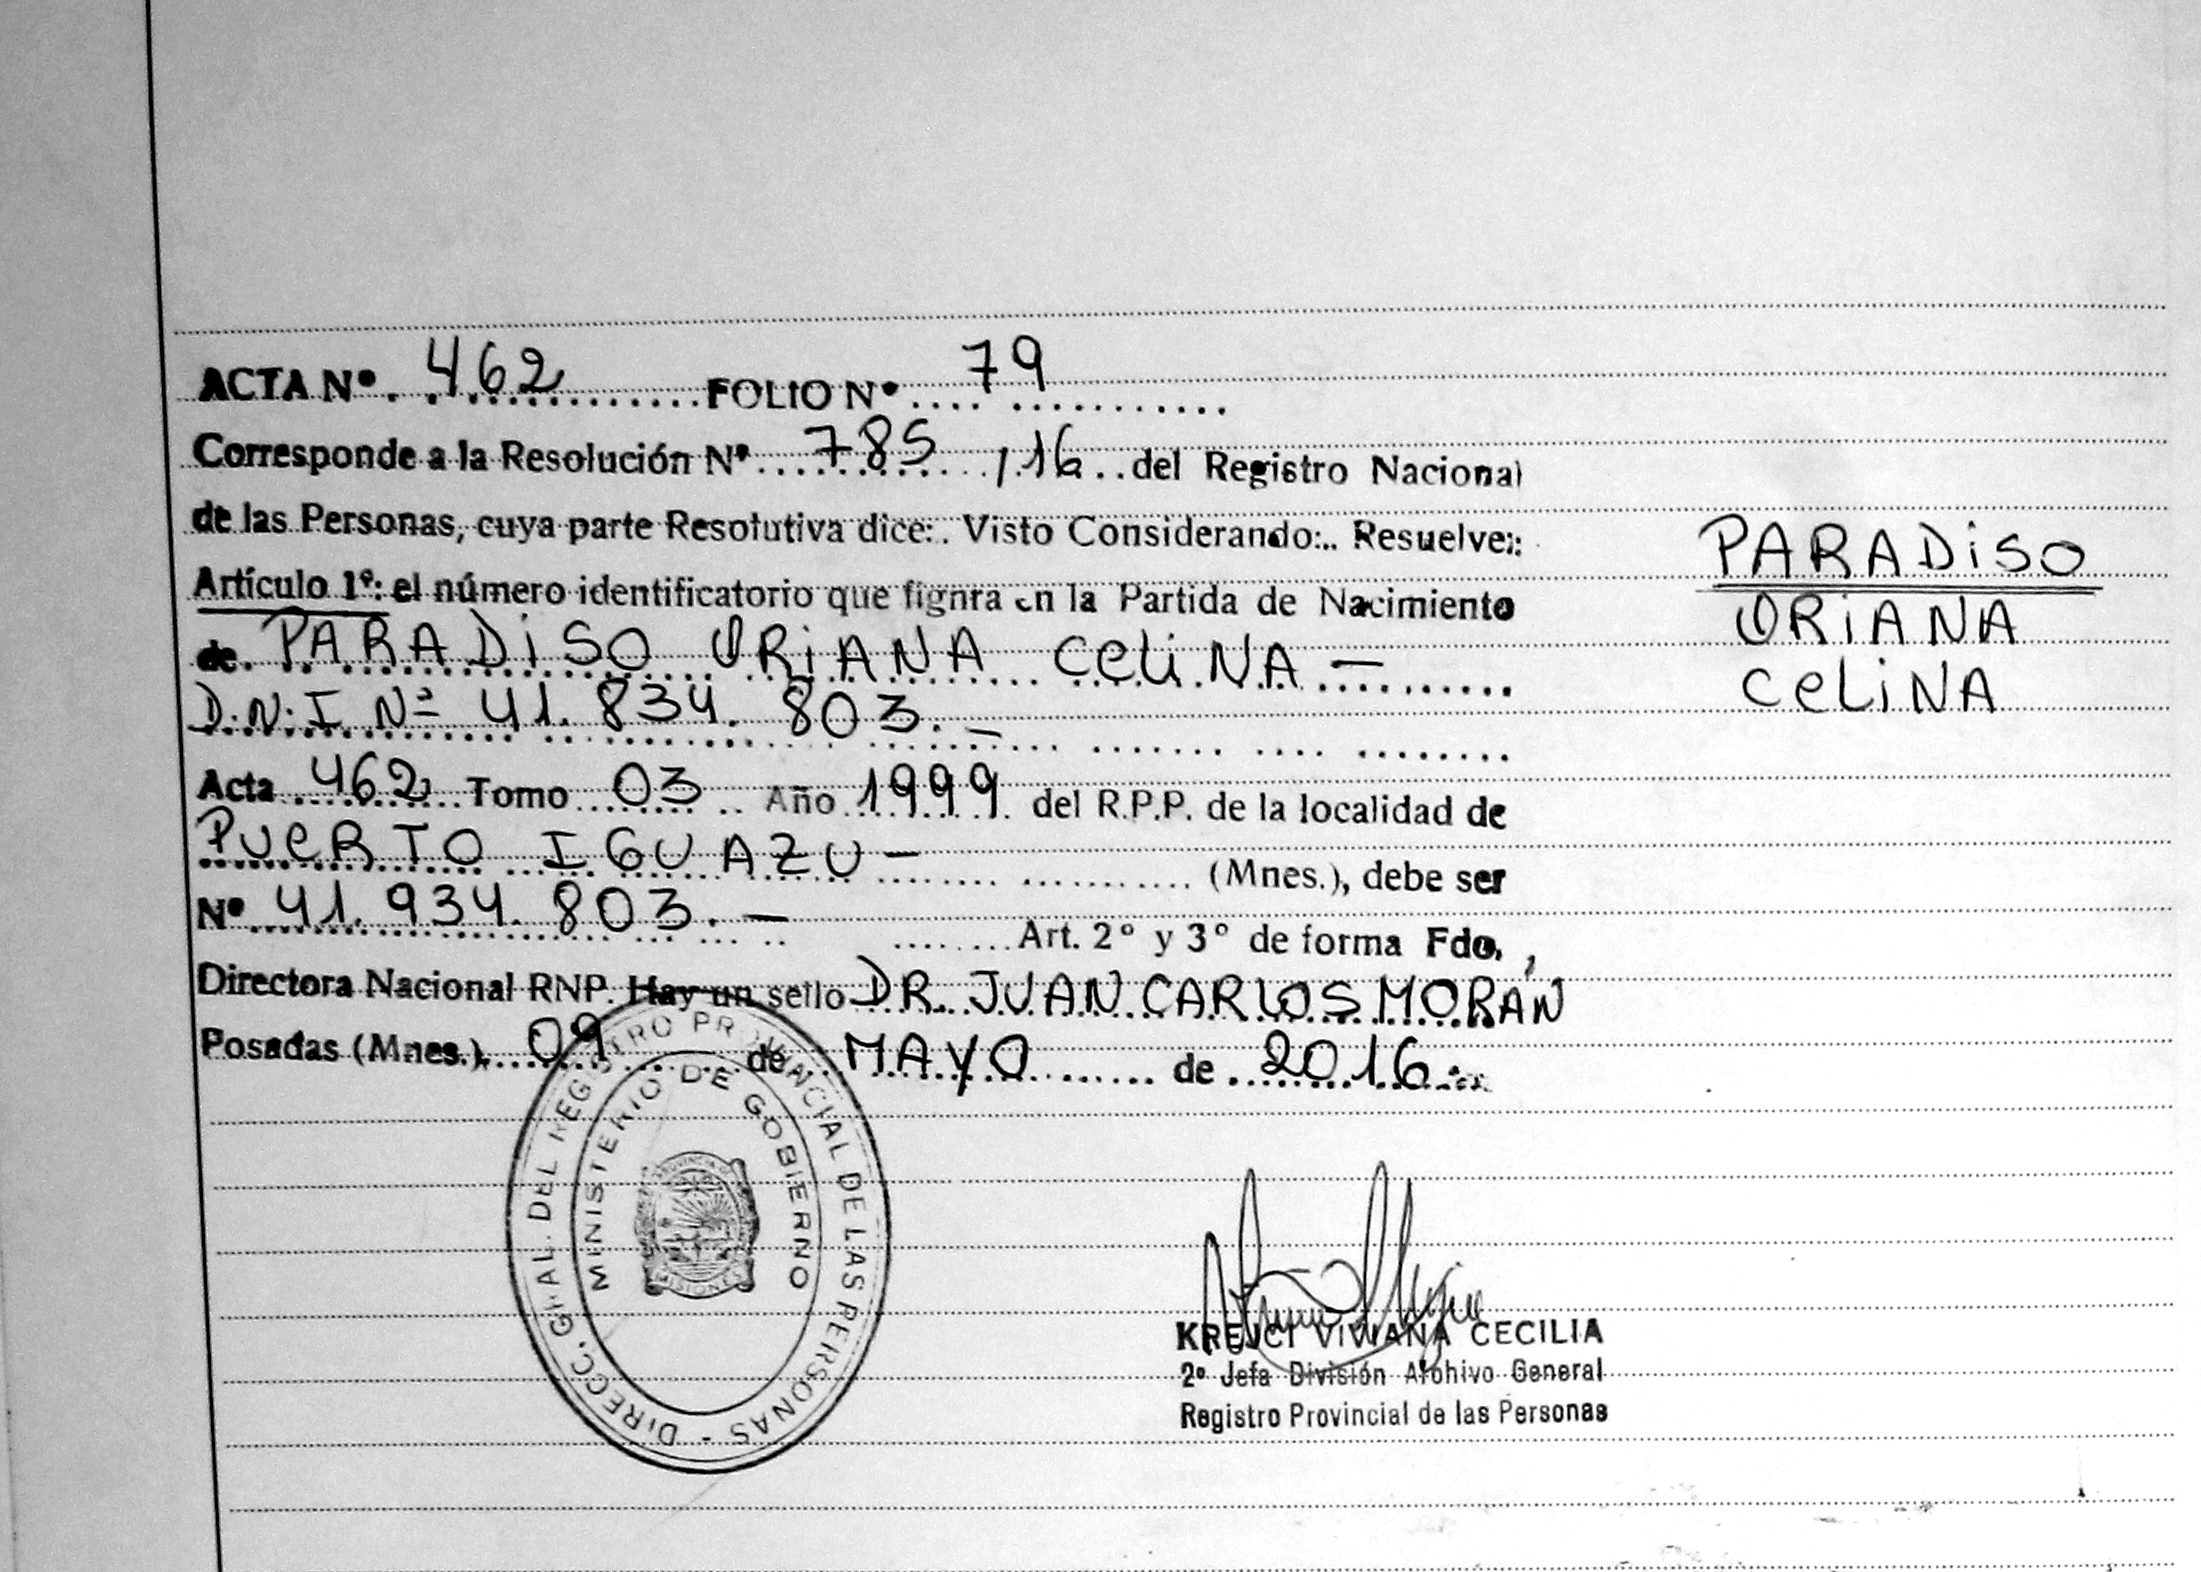 ACTA Nº 462 FOLIO Nº 79
Corresponde a la Resolución Nº 785 /16 del Registro Nacional
de las Personas, cuya parte Resolutiva dice: Visto Considerando: Resuelve:
Artículo 1º: el número identificatorio que figura en la Partida de Nacimiento
de PARADiSO ORiANA CeLiNA -
D.N.I Nº 41.834.803.-
Acta 462 Tomo 03 Año 1999 del R.P.P. de la localidad de
PUeRTO IGUAZU - (Mnes.), debe ser
Nº 41.934.803.- Art. 2º y 3º de forma Fdo.
Directora Nacional RNP. Hay un sello DR. JUAN CARLOS MORÁN
Posadas (Mnes.), 09 de MAYO de 2016.-
PARADiSO
ORiANA
CeLiNA
DIRECC. GRAL. DEL REGISTRO PROVINCIAL DE LAS PERSONAS -
MINISTERIO DE GOBIERNO
PROVINCIA DE
MISIONES
KREJCI VIVIANA CECILIA
2º Jefa División Archivo General
Registro Provincial de las Personas